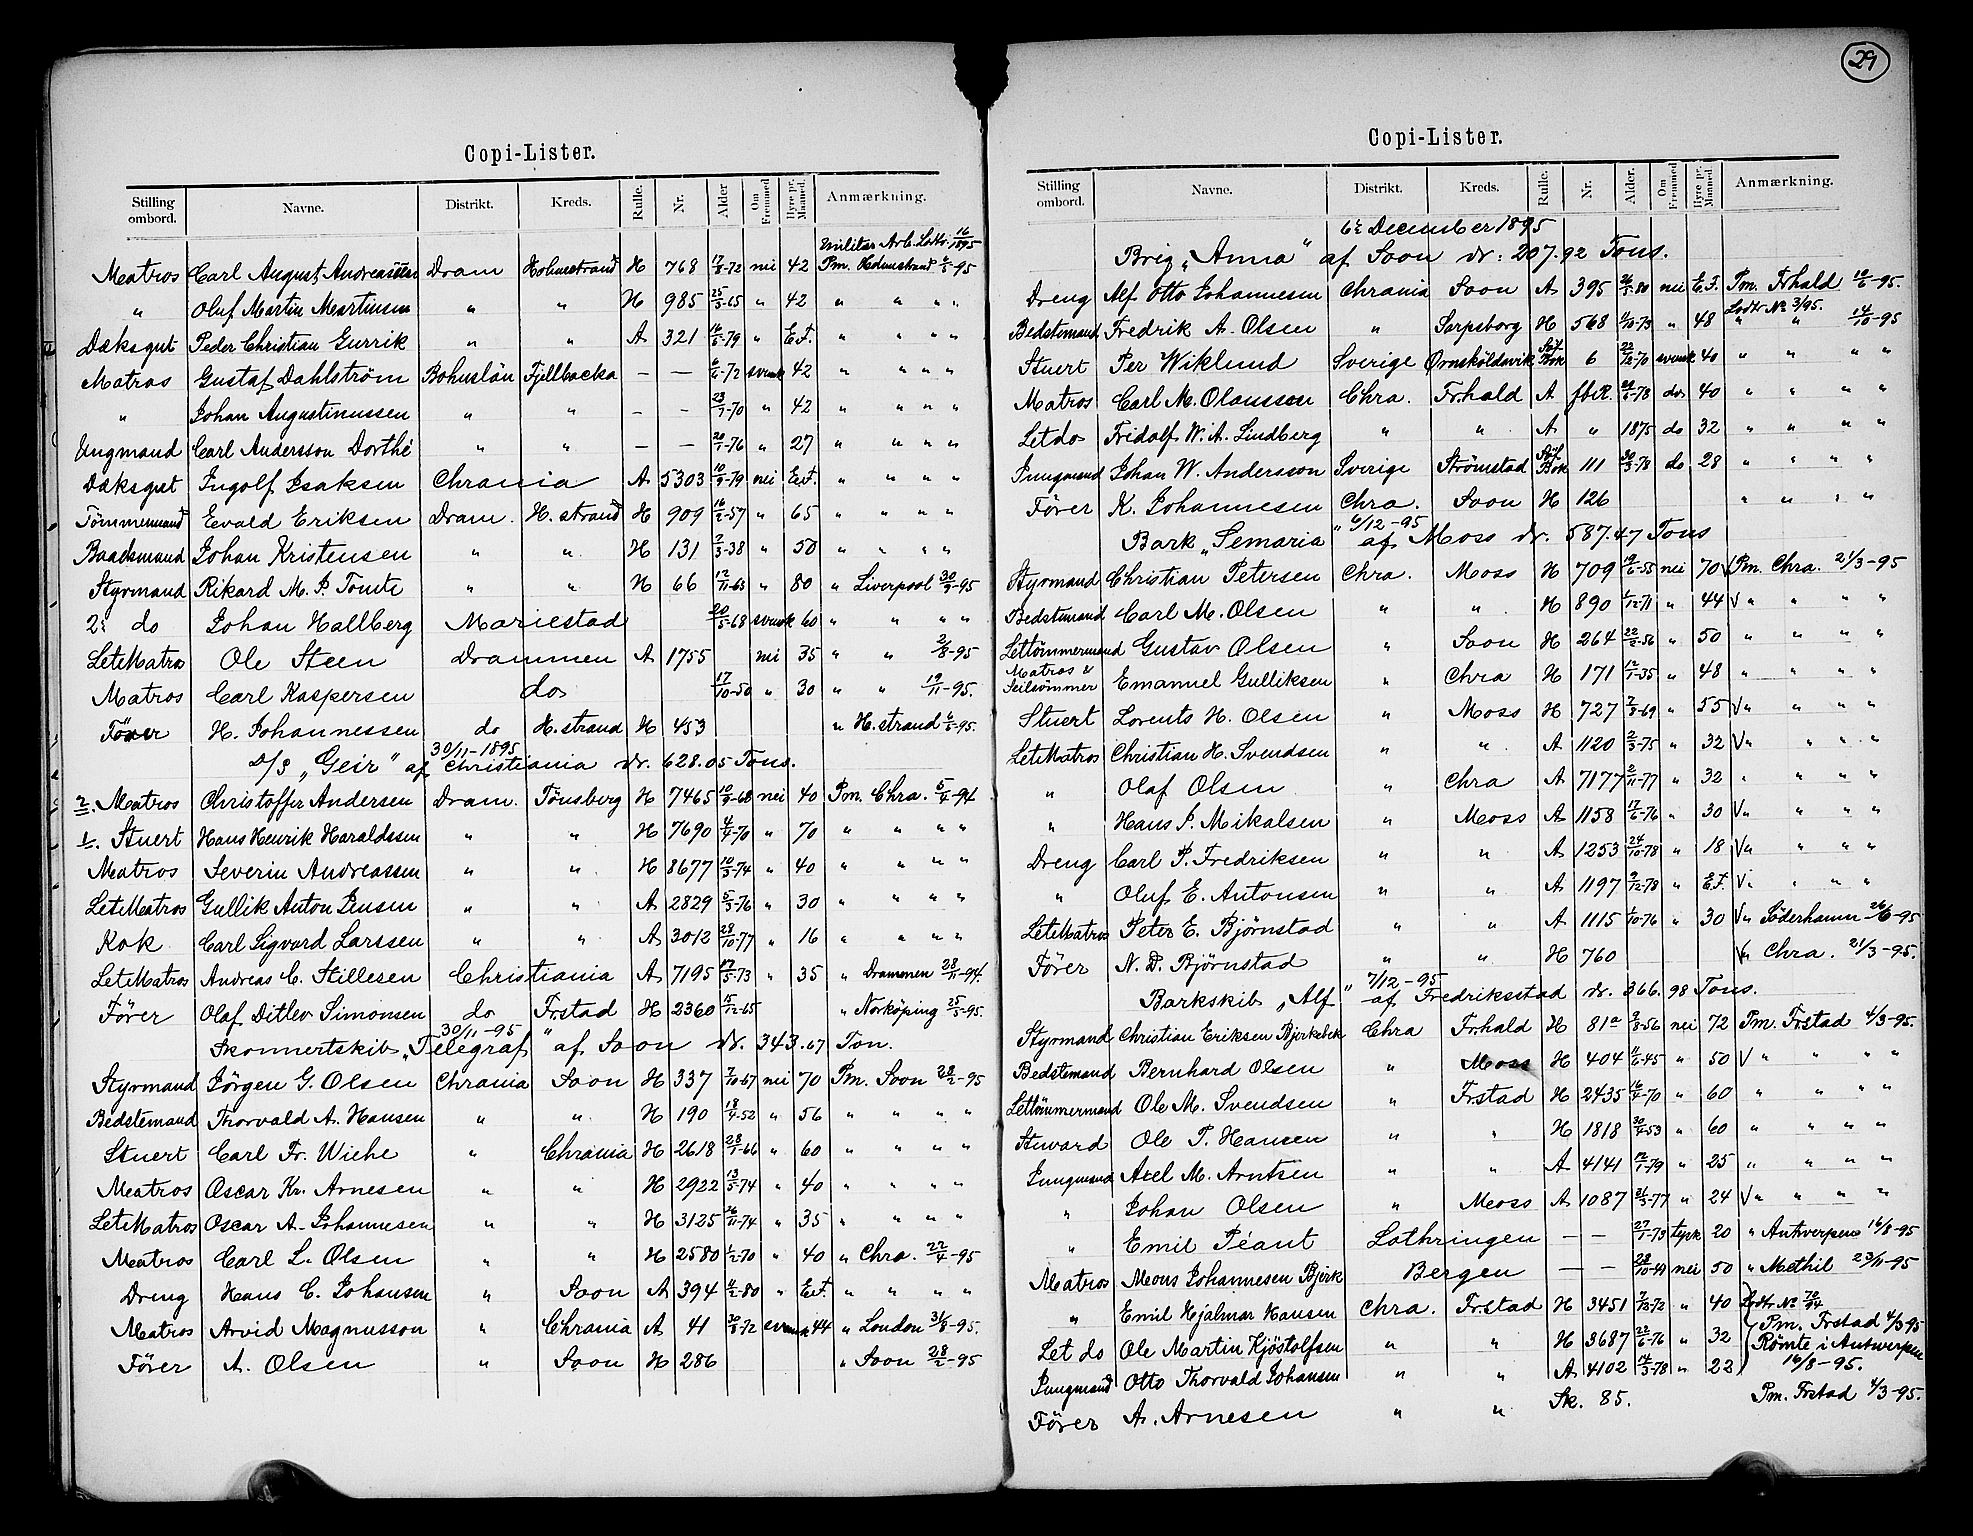 29
Copi-Lister.
Stilling ombord. Navne. Distrikt. Kreds. Rulle. Nr. Alder Om Fremmed Hyre pr. Maaned. Anmærkning.
Militær Arb. Lodtr. 16/1895
Matros Carl August Andreassen Dram Holmestrand H 768 17/8-72 nei 42 Pm. Holmestrand 6/5-95
" Oluf Martin Martinsen " " H 985 25/3-65 " 42 " " " "
Dæksgut Peder Christian Gurrik " " A 321 16/6-79 " E.F. " " " "
Matros Gustaf Dahlström Bohuslän Fjellbacka — — 6/4-72 svensk 42 " " " "
" Johan Augustinussen " " - - 23/7-70 " 42 " " " "
Ungmand Carl Andersson Dorthé " " — — 20/1-76 " 27 " " " "
Dæksgut Ingolf Isaksen Chrania A 5303 10/9-79 nei E.F. " " " "
Tömmermand Evald Eriksen Dram. H. strand H 909 16/2-57 " 65 " " " "
Baadsmand Johan Kristensen " " H 131 2/3-38 " 50 " " " "
Styrmand Rikard M. P. Tomte " " H 66 12/11-63 " 80 " Liverpool 30/7-95
2: do Johan Hallberg Mariestad 20/5-68 svensk 60 " " " "
LetMatros Ole Steen Drammen A 1755 nei 35 " " 2/8-95
Matros Carl Kaspersen do 17/10-50 " 30 " " 19/11-95.
Förer H. Johannessen do H. strand H 453 " H. strand 6/5-95.
30/11-1895
D/S „Geir" af Christiania dr. 628.05 Tons.
2. Matros Christoffer Andersen Dram. Tönsberg H 7465 10/9-68 nei 40 Pm. Chra. 5/4-94
1. Stuert Hans Henrik Haraldssen " " H 7690 4/4-70 " 70 " " " "
Matros Severin Andreassen " " H 8677 10/3-74 " 40 " " " "
LetMatros Gullik Anton Jensen " " A 2829 5/3-76 " 30 " " " "
Kok Carl Sigvard Larssen " " A 3012 28/10-77 " 16 " " " "
LetMatros Andreas C. Stillesen Christiania A 7195 17/5-73 " 35 " Drammen 28/11-94.
Förer Olaf Ditlev Simonsen do Frstad H 2360 15/12-65 " Norköping 25/5-95.
30/11-95
Skonnertskib „Telegraf" af Soon dr. 343.67 Ton.
Styrmand Jörgen G. Olsen Chrania Soon H 337 7/10-67 nei 70 Pm. Soon 28/2-95
Bedstemand Thorvald A. Hansen " " H 190 18/4-52 " 56 " " " "
Stuert Carl Fr. Wiehe " Chrania H 2618 28/1-66 " 60 " " " "
Matros Oscar Kr. Arnesen " " H 2922 13/5-74 " 40 " " " "
LetMatros Oscar A. Johannesen " " H 3125 26/11-74 " 35 " " " "
Matros Carl L. Olsen " " H 2580 1/2-70 " 40 " Chra. 22/4-95
Dreng Hans C. Johansen " Soon A 394 4/2-80 " E.F. " " " "
Matros Arvid Magnusson " Chrania A 41 30/8-72 svensk 44 " London 31/8-95.
Förer A. Olsen " Soon H 286 " Soon 28/2-95
Copi-Lister.
Stilling ombord. Navne. Distrikt. Kreds. Rulle. Nr. Alder. Om Fremmed Hyre pr. Maaned. Anmærkning.
6te December 1895
Brig „Anna" af Soon dr: 207.92 Tons.
Dreng Alf Otto Johannesen Chrania Soon A 395 26/5-80 nei E.F. Pm. Frhald 10/6-95.
Bedstemand Fredrik A. Olsen " Sarpsborg H 568 4/10-73 " 48 Lodtr No 3/95. " " 14/10-95
Stuert Per Wiklund Sverige Örnsköldsvik Söf. Bok 6 22/12-70 svensk 40 " " " "
Matros Carl M. Olaussen Chra. Frhald A fbR. 24/6-78 do 40 " " " "
Letdo Fridolf W. A. Lindberg " " A " 1875 do 32 " " " "
Jungmand Johan W. Andersson Sverige Strömstad Söf. Bok 111 30/3-78 do 28 " " " "
Förer K. Johannesen Chra. Soon H 126 " " " "
6/12-95
Bark „Semaria" af Moss dr. 587.47 Tons
Styrmand Christian Petersen Chra. Moss H 709 19/6-55 nei 70 Pm. Chra. 21/3-95
Bedstemand Carl M. Olsen " " H 890 1/12-71 " 44 V " " " "
Lettömmermand Gustav Olsen " Soon H 264 22/2-56 " 50 " " " "
Matros & Seilsömmer Emanuel Gulliksen " Chra H 171 12/1-35 " 48 " " " "
Stuert Lorents H. Olsen " Moss H 727 7/9-69 " 55 V " " " "
LetMatros Christian H. Svendsen " " A 1120 2/3-75 " 32 V " " " "
" Olaf Olsen " Chra A 7177 2/11-77 " 32 " " " "
" Hans P. Mikalsen " Moss A 1158 17/6-76 " 30 V " " " "
Dreng Carl P. Fredriksen " " A 1253 24/10-78 " 18 V " " " "
" Oluf E. Antonsen " " A 1197 9/12-78 " E.F. V " " " "
LetMatros Peter E. Björnstad " " A 1115 1/10-76 " 30 V " Söderhamn 26/6-95
Förer N. D. Björnstad " " H 760 V " Chra. 21/3-95.
7/12-95
Barkskib „Alf" af Fredriksstad dr. 366.98 Tons.
Styrmand Christian Eriksen Bjerkebek Chra Frhald H 81a 9/8-56 nei 72 Pm. Frstad 4/3-95.
Bedstemand Bernhard Olsen " Moss H 404 11/6-45 " 50 V " " " "
Lettömmermand Ole M. Svendsen " Frstad H 2435 16/4-70 " 60 " " " "
Stuvard Ole P. Hansen " " H 1818 30/4-53 " 60 " " " "
Jungmand Axel M. Arntsen " " A 4141 12/1-79 " 25 " " " "
" Johan Olsen " Moss A 1087 21/3-77 " 24 V " " " "
" Emil Péant Lothringen — — 27/1-73 tysk 20 " Antwerpen 16/8-95
Matros Mons Johannesen Bjerk Bergen — — 28/10-49 nei 50 " Methil 23/11-95
" Emil Hjalmar Hansen Chra. Frstad H 3451 7/12-72 " 40 Lodtr No 70/94. Pm. Frstad 4/3 95
Let do Ole Martin Kjöstolfsen " " H 3687 22/6-76 " 32 Römte i Antwerpen
Jungmand Otto Thorvald Johansen " " A 4102 14/3-78 " 22 16/8-95.
Förer A. Arnesen " " Sk. 85. Pm. Frstad 4/3-95.